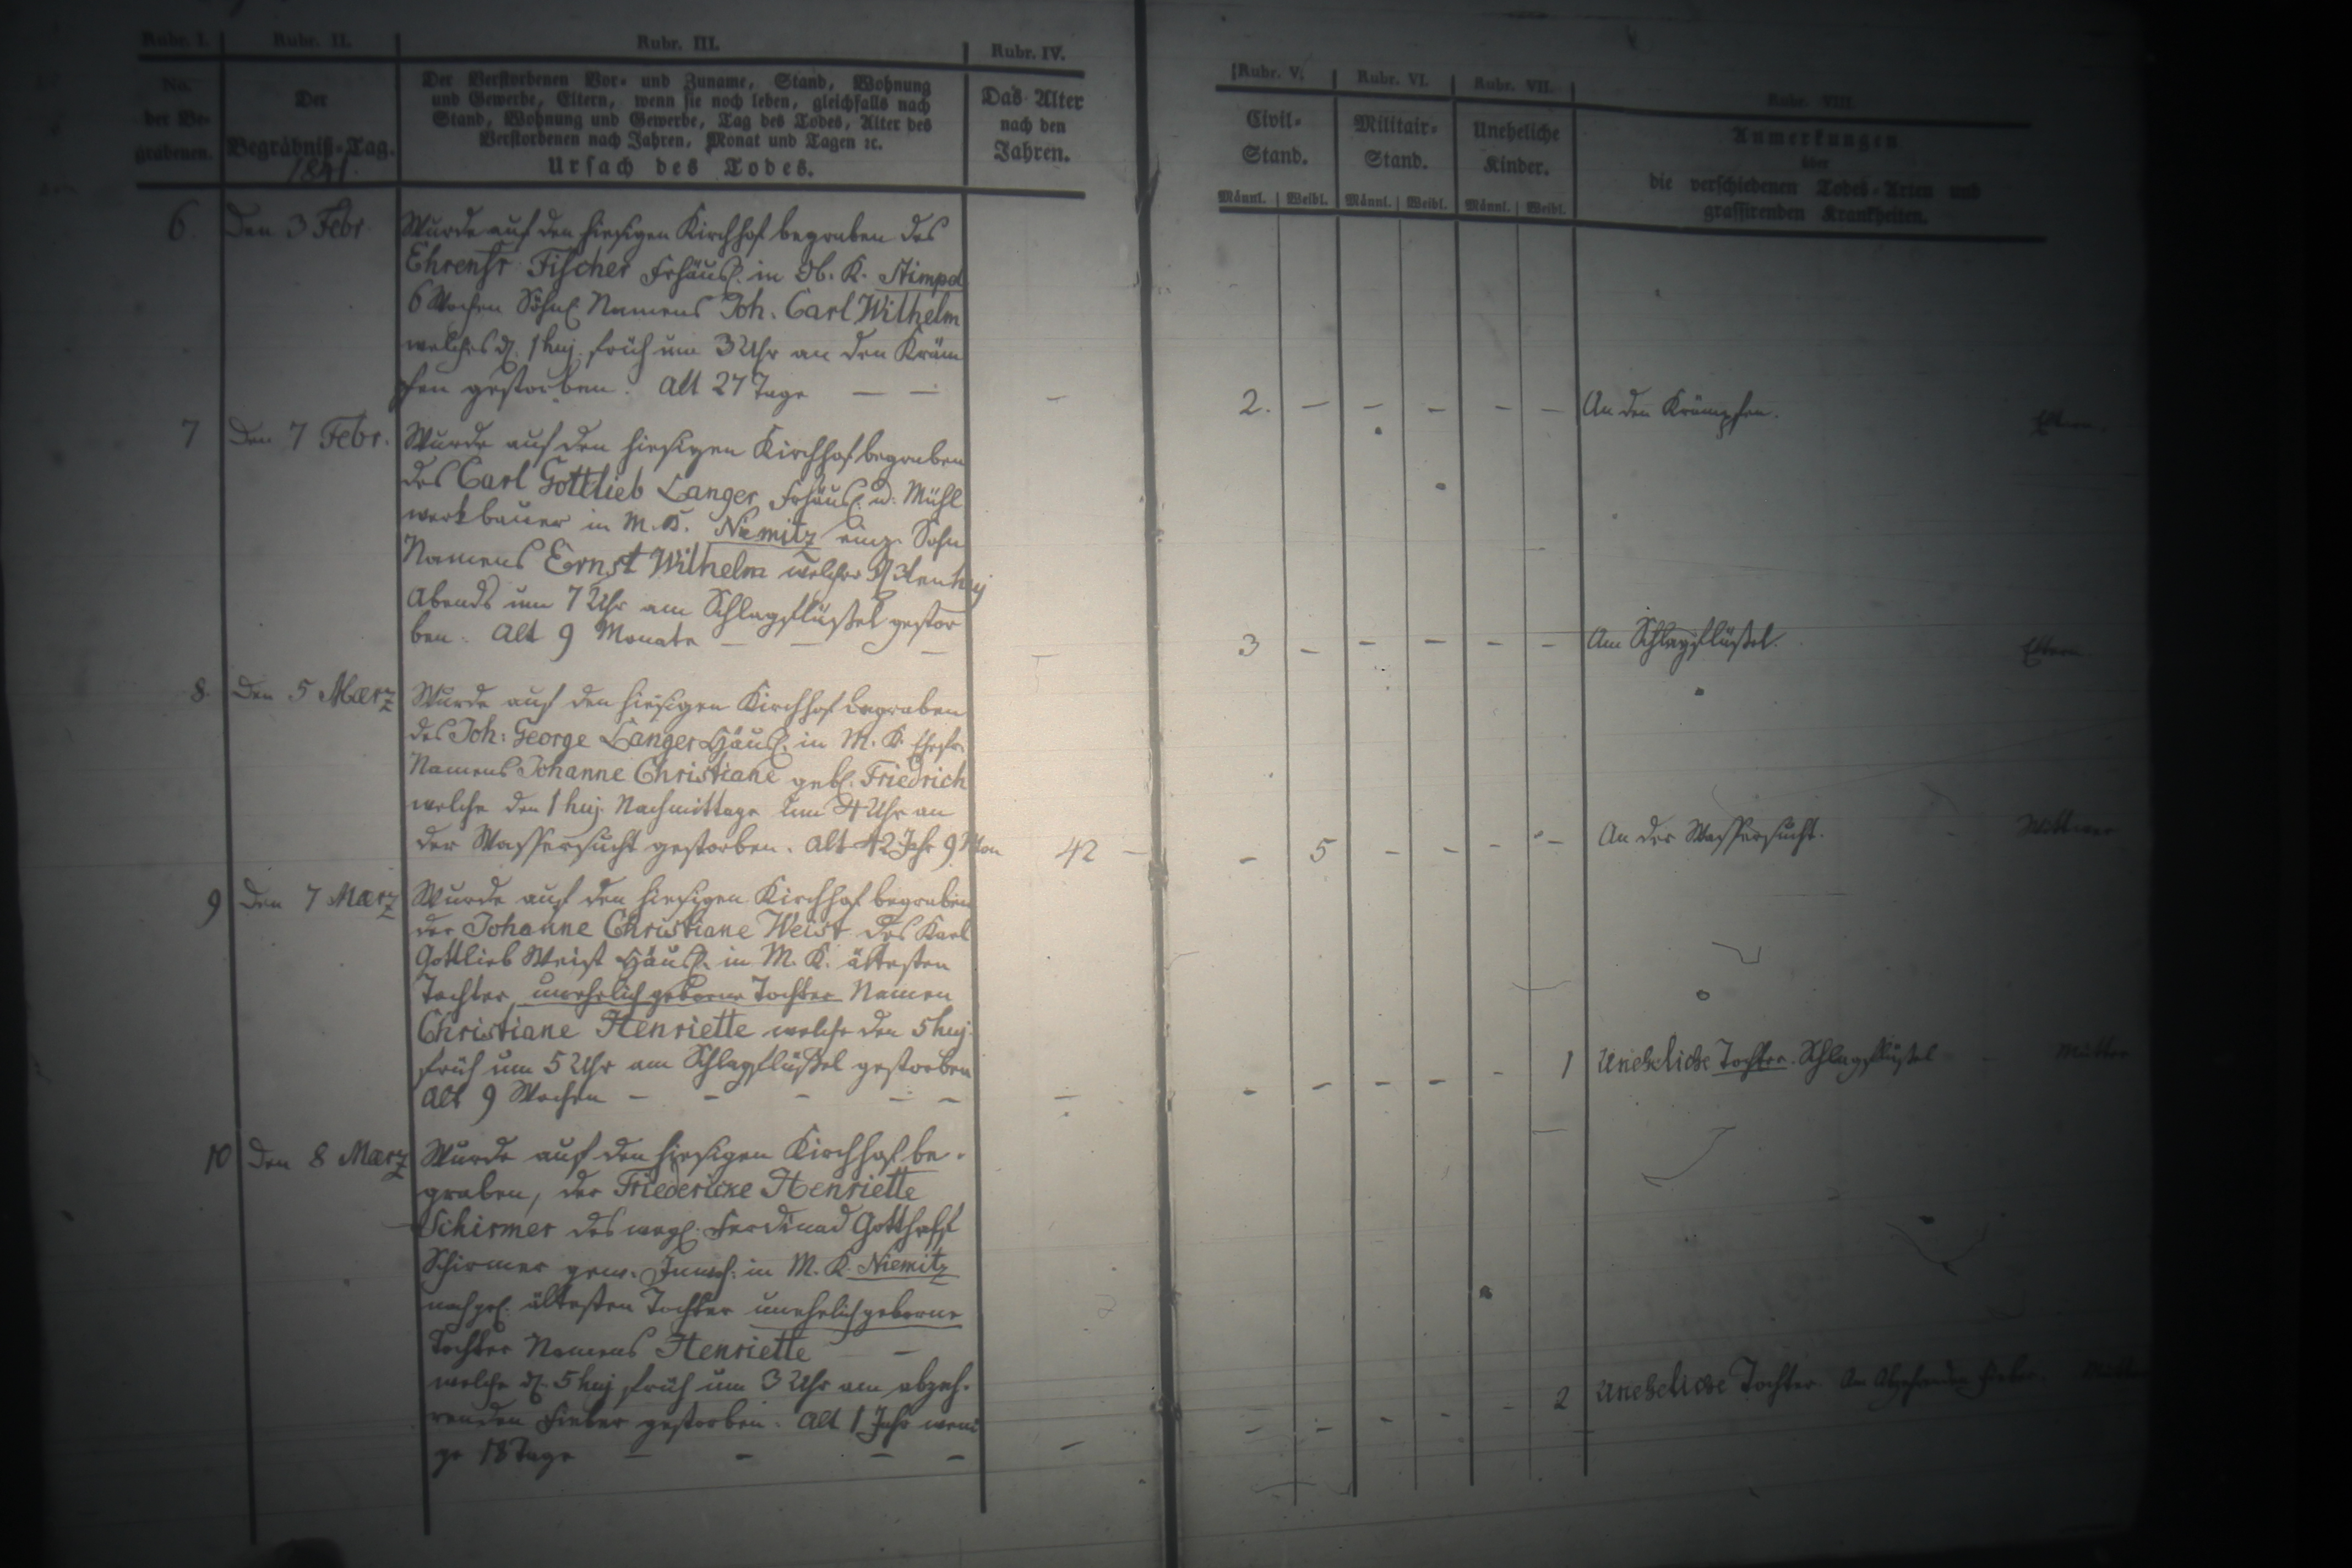 Rubr. I.
Rubr. II.
Rubr. III.
Rubr. IV.
Rubr. V.
Rubr. VI.
Rubr. VII.
Rubr. VIII.
No.
der Be-
grabenen.
Der
Begräbniß-Tag.
1841.
Der Verstorbenen Vor- und Zuname, Stand, Wohnung
und Gewerbe, Eltern, wenn sie noch leben, gleichfalls nach
Stand, Wohnung und Gewerbe, Tag des Todes, Alter des
Verstorbenen nach Jahren, Monat und Tagen ꝛc.
Ursach des Todes.
Das Alter
nach den
Jahren.
Civil-
Stand.
Männl. Weibl.
Militair-
Stand.
Männl. Weibl.
Uneheliche
Kinder.
Männl. Weibl.
Anmerkungen
über
die verschiedenen Todes-Arten und
grassirenden Krankheiten.
6 Den 3 Febr.
Wurde auf den hiesigen Kirchhof begraben des
Ehrenfr Fischer Frhäusl. in Ob. K. Stimpel
6 Wochen Söhnl. Namens Joh. Carl Wilhelm
welches d. 1 huj. früh um 3 Uhr an den Kräm
pfen gestorben. Alt 27 Tage — —
- 2. — — — — — An den Krämpfen. Eltern.
7 Den 7 Febr.
Wurde auf den hiesigen Kirchhof begraben
des Carl Gottlieb Langer Frhäusl. u. Mühl
werkbauer in M. K. Niemitz einz. Sohn
Namens Ernst Wilhelm welcher d 3ten huj
Abends um 7 Uhr am Schlagflüßel gestor
ben. Alt 9 Monate — — —
- 3 - - - - - Am Schlagflüßel. Eltern
8. Den 5 Maerz
Wurde auf den hiesigen Kirchhof begraben
des Joh: George Langer Häusl. in M. K. Ehefr.
Namens Johanne Christiane gebl. Friedrich
welche den 1 huj. Nachmittage um 4 Uhr an
der Wassersucht gestorben. Alt 42 Jahr 9 Mon
42 — - 5 - - - - An der Wassersucht. Wittwer
9 Den 7 Maerz
Wurde auf den hiesigen Kirchhof begraben
der Johanne Christiane Weist des Karl
Gottlieb Weist Häusl. in M. K. ältesten
Tochter, unehelich geborne Tochter Namen
Christiane Henriette welche den 5 huj.
früh um 5 Uhr am Schlagflüßel gestorben
Alt 9 Wochen - - - - -
- - - - - - 1 Uneheliche Tochter. Schlagflüßel Mutter
10 Den 8 Maerz
Wurde auf den hiesigen Kirchhof be-
graben, der Friedericke Henriette
Schirmer des Ferdinad Gotthelf
Schirmer gew. Innwh: in M. K. Niemitz
nachgel. ältesten Tochter unehelich geborne
Tochter Namens Henriette —
welche d. 5 huj früh um 3 Uhr am abzeh-
renden Fieber gestorben. Alt 1 Jahr weni
ge 18 Tage - - - -
- - - - - - 2 Uneheliche Tochter. Am Abzehrenden Fieber. Mutter